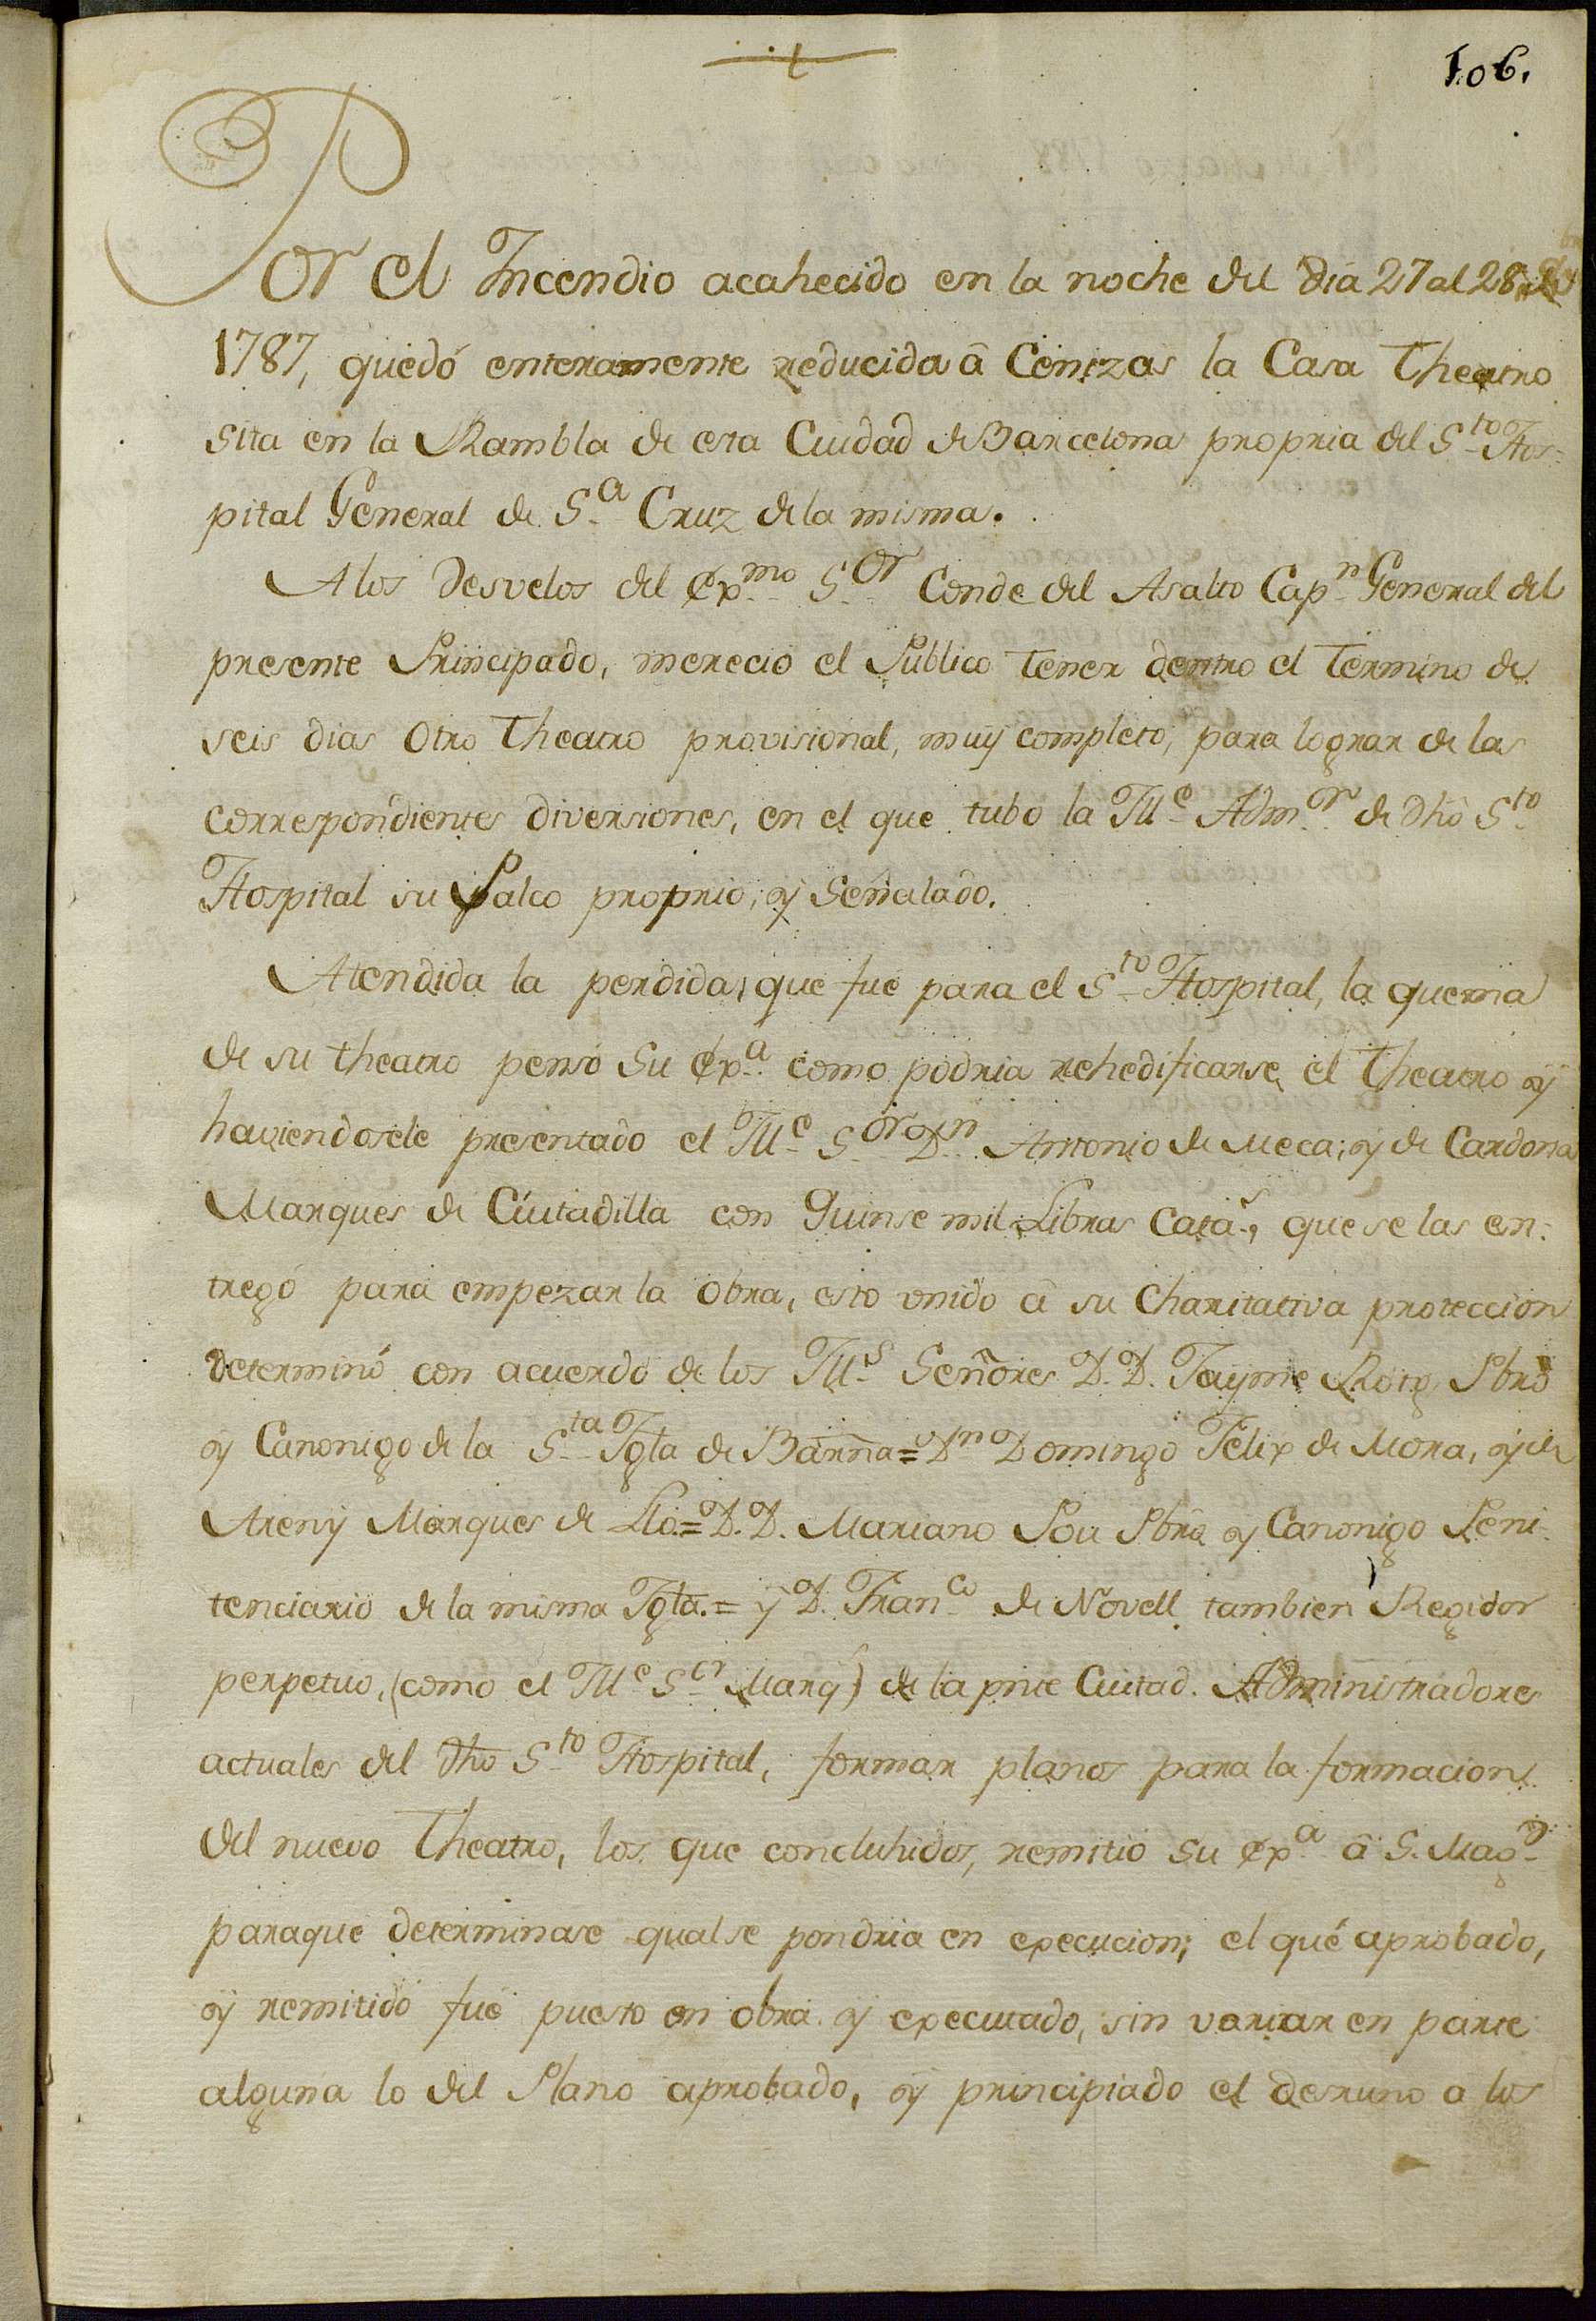 106.
Por el Incendio acahecido en la noche del dia 27 al 28
1787, quedó enteramente reducida â Cenizas la Casa Theatro
sita en la Rambla de esta Ciudad de Barcelona propria del S.to Hos-
pital General de S.a Cruz de la misma.
A los Desvelos del Exmo S.or Conde del Asalto Cap.n General del
presente Principado, merecio el Publico tener dentro el termino de
seis dias otro Theatro provisional, muy completo, para lograr de las
correspondientes diversiones, en el que tubo la Ill.e Adm.on de dho S.to
Hospital su Palco proprio, y Señalado.
Atendida la perdida, que fué para el S.to Hospital, la quema
de su theatro pensó Su Ex.a como podria rehedificarse el Theatro y
haviendosele presentado el Ill.e S.or D.n Antonio de Meca, y de Cardona
Marques de Ciutadilla con Quinse mil Libras Cata.s, que se las en-
tregó para empezar la obra, esto unido â su Charitativa proteccion
determinó con acuerdo de los Ill.s Señores D. D. Jayme Roig Pbro
y Canonigo de la S.ta Igla de Barña = D.n Domingo Felix de Mora, y de
Areny Marques de Llo = D. D. Mariano Sou Pbro y Canonigo Peni-
tenciario de la misma Igla. = y D. Fran.co de Novell tambien Regidor
perpetuo, (como el Ill.e S.or Marq.s) de la pnte Ciutad. Administradores
actuales del dho S.to Hospital, formar planos para la formacion
del nuevo Theatro, los que concluhidos, remitió su Ex.a â S. Mag.d
paraque determinase qual se pondria en execucion; el qué aprobado,
y remitido fué puesto en obra y executado, sin variar en parte
alguna lo del Plano aprobado, y principiado el desruno a los